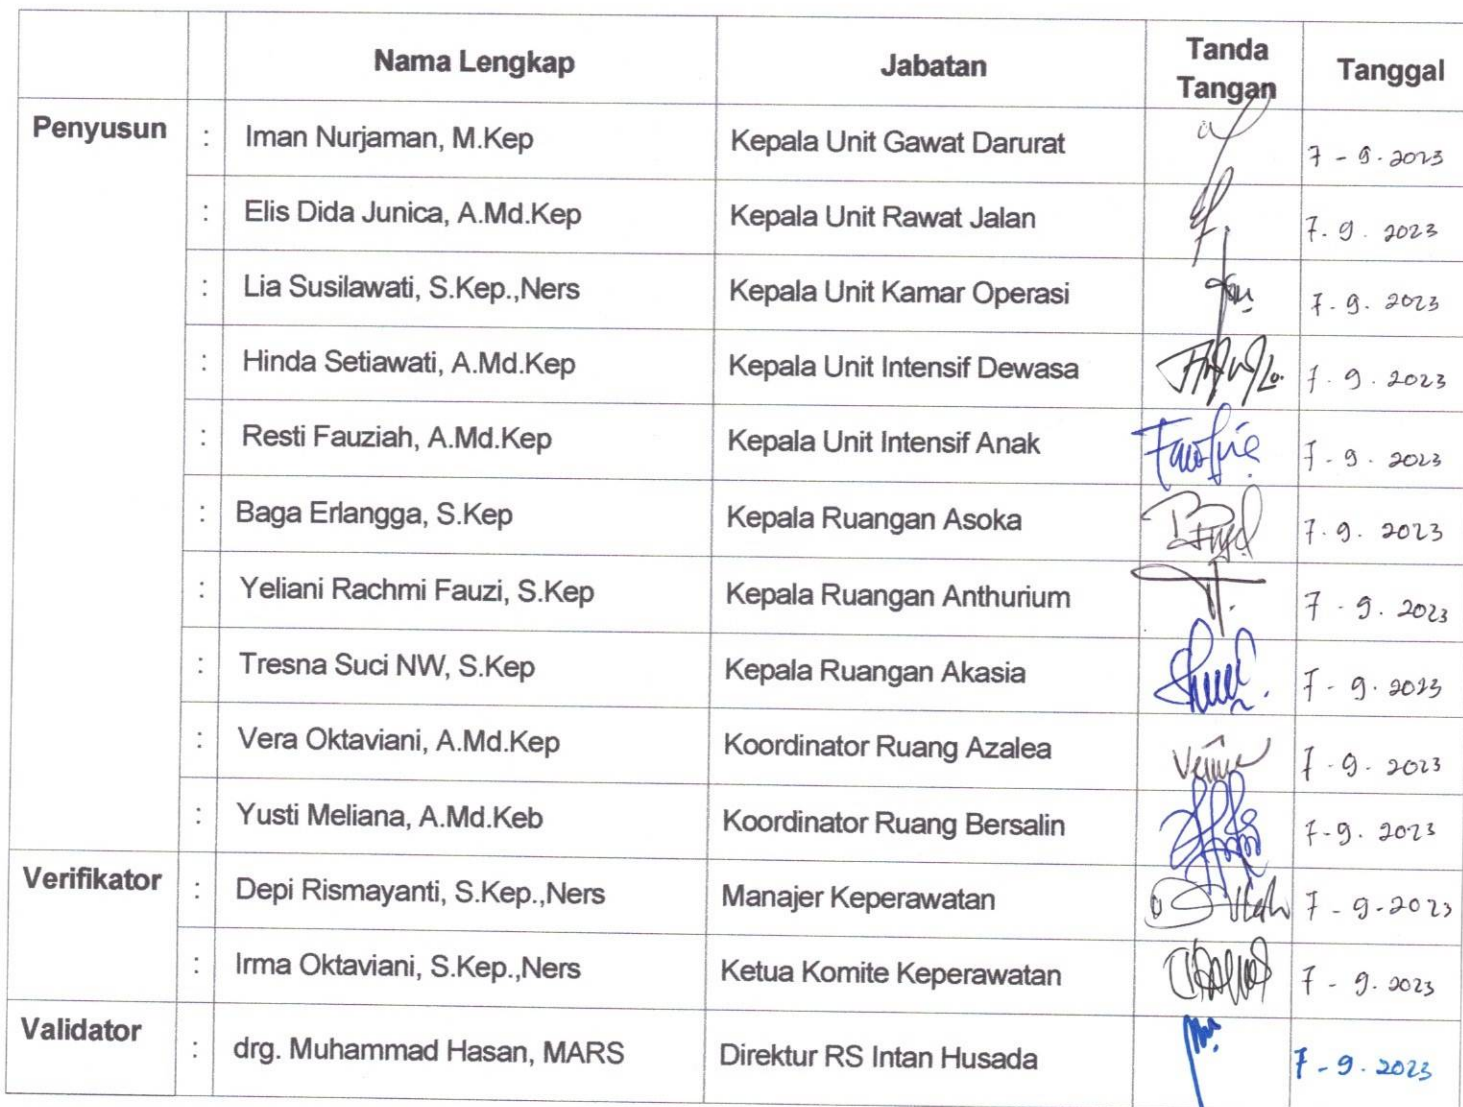 Nama Lengkap Jabatan Tanda Tangan Tanggal
Penyusun : Iman Nurjaman, M.Kep Kepala Unit Gawat Darurat 7 - 9 . 2023
: Elis Dida Junica, A.Md.Kep Kepala Unit Rawat Jalan 7 . 9 . 2023
: Lia Susilawati, S.Kep.,Ners Kepala Unit Kamar Operasi 7 . 9 . 2023
: Hinda Setiawati, A.Md.Kep Kepala Unit Intensif Dewasa 7 . 9 . 2023
: Resti Fauziah, A.Md.Kep Kepala Unit Intensif Anak 7 - 9 . 2023
: Baga Erlangga, S.Kep Kepala Ruangan Asoka 7 . 9 . 2023
: Yeliani Rachmi Fauzi, S.Kep Kepala Ruangan Anthurium 7 - 9 . 2023
: Tresna Suci NW, S.Kep Kepala Ruangan Akasia 7 - 9 . 2023
: Vera Oktaviani, A.Md.Kep Koordinator Ruang Azalea 7 - 9 . 2023
: Yusti Meliana, A.Md.Keb Koordinator Ruang Bersalin 7 - 9 . 2023
Verifikator : Depi Rismayanti, S.Kep.,Ners Manajer Keperawatan 7 - 9 - 2023
: Irma Oktaviani, S.Kep.,Ners Ketua Komite Keperawatan 7 - 9 . 2023
Validator : drg. Muhammad Hasan, MARS Direktur RS Intan Husada 7 - 9 . 2023